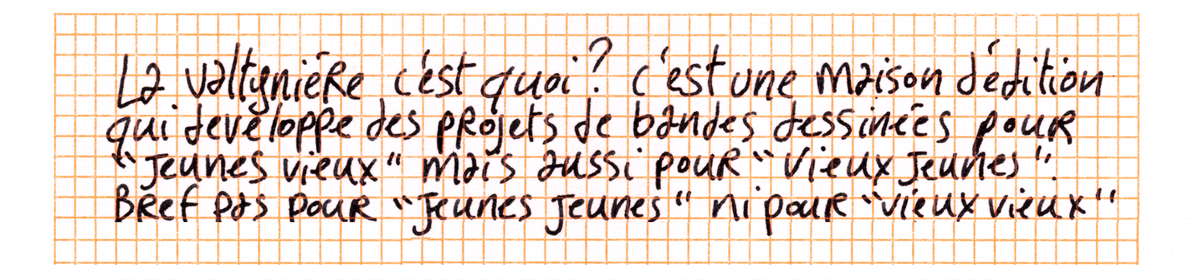 La valtynière c'est quoi? c'est une maison d'édition
qui développe des projets de bandes dessinées pour
"jeunes vieux" mais aussi pour "vieux jeunes".
Bref pas pour "jeunes jeunes" ni pour "vieux vieux"